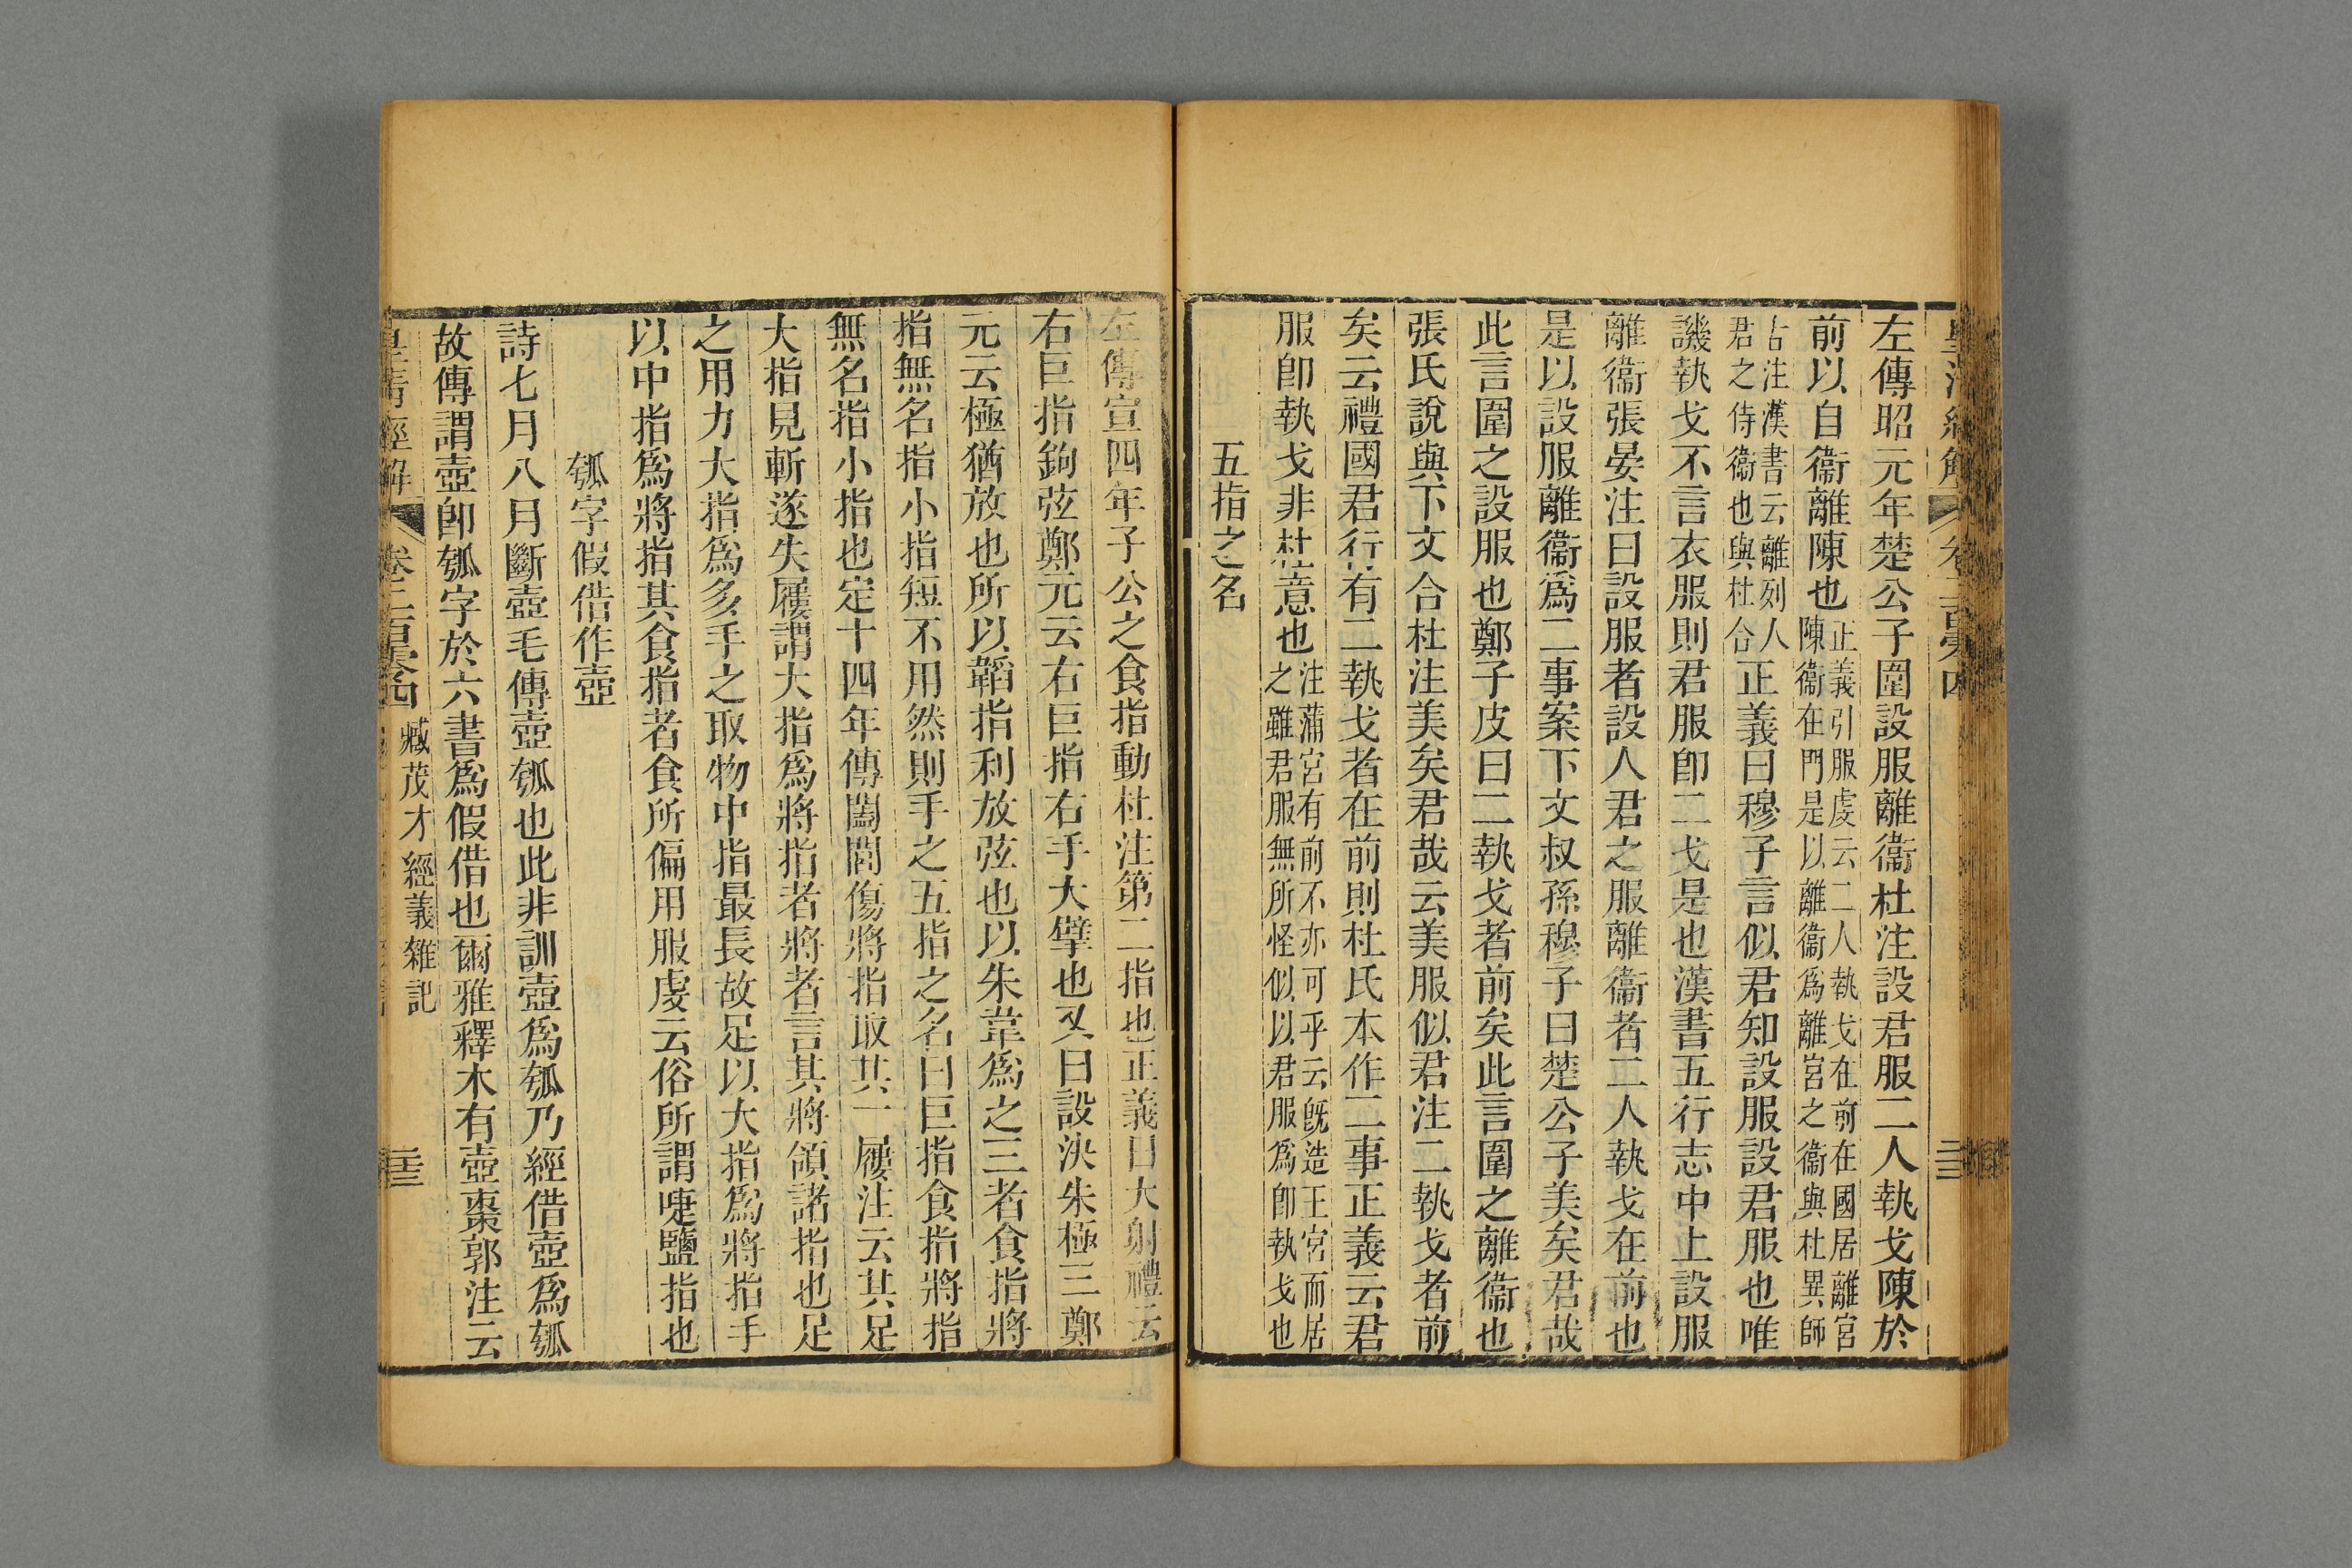 左傳昭元年楚公子圍設服離衞杜注設君服二人執戈陳於
前以自衞離陳也正義引服虔云二人執戈在前在國居離宮陳衞在門是以離衞爲離宮之衞與杜異師
古注漢書云離列人君之侍衞也與杜合正義曰穆子言似君知設服設君服也唯
譏執戈不言衣服則君服卽二戈是也漢書五行志中上設服
離衞張晏注曰設服者設人君之服離衞者二人執戈在前也
是以設服離衞爲二事案下文叔孫穆子曰楚公子美矣君哉
此言圍之設服也鄭子皮曰二執戈者前矣此言圍之離衞也
張氏說與下文合杜注美矣君哉云美服似君注二執戈者前
矣云禮國君行有二執戈者在前則杜氏本作二事正義云君
服卽執戈非杜意也注蒲宮有前不亦可乎云旣造王宮而居之雖君服無所怪似以君服爲卽執戈也
五指之名
左傳宣四年子公之食指動杜注第二指也正義曰大射禮云
右巨指鉤弦鄭元云右巨指右手大擘也又曰設決朱極三鄭
元云極猶放也所以韜指利放弦也以朱韋爲之三者食指將
指無名指小指短不用然則手之五指之名曰巨指食指將指
無名指小指也定十四年傳闔閭傷將指取其一屨注云其足
大指見斬遂失屨謂大指爲將指者將者言其將領諸指也足
之用力大指爲多手之取物中指最長故足以大指爲將指手
以中指爲將指其食指者食所偏用服虔云俗所謂啑鹽指也
瓠字假借作壺
詩七月八月斷壺毛傳壺瓠也此非訓壺爲瓠乃經借壺爲瓠
故傳謂壺卽瓠字於六書爲假借也爾雅釋木有壺棗郭注云
皇清經解 卷二百零四 臧茂才經義雜記 三三